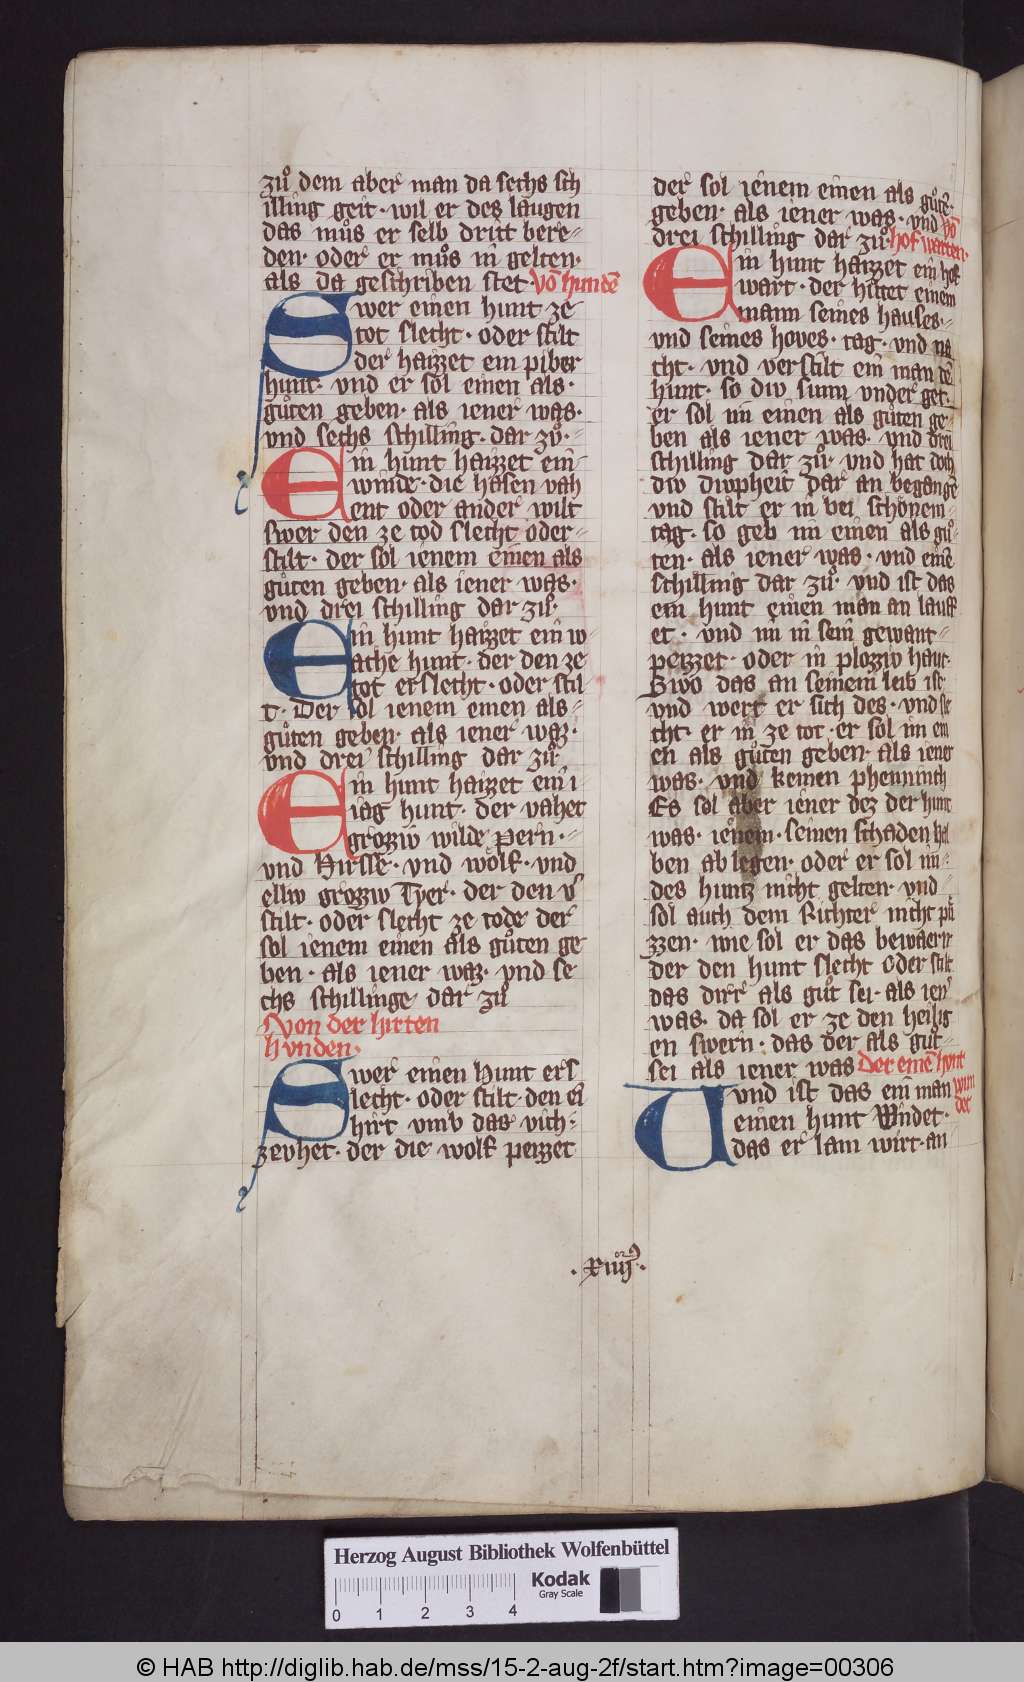 zuͦ dem aber man da sechs sch
illing geit · wil er dez laugen
das muͦs er selb dritt bere-
den · oder er muͦs in gelten ·
als da geschriben stet · vō hundē
Swer einen hunt ze
tot slecht · oder stilt
der haizzet ein piber
hunt · vnd er sol einen als ·
guͦten geben · als iener was ·
vnd sechs schilling · dar zuͦ ·
Ein hunt haizzet ein
winde · die hasen vah
ent oder ander wilt
swer den ze tod slecht oder-
stilt · der sol ienem einen als
guͦten geben · als iener was ·
vnd drei schilling dar zuͦ ·
Ein hunt haizzet ein w-
athe hunt · der den ze
tot erslecht · oder stil
t · Der sol ienem einen als-
guͦten geben · als iener waz ·
vnd drei schilling dar zuͦ
Ein hunt haizzet ein i
iag hunt · der vahet
grozziv wilde pern ·
vnd Hirsse · vnd wolf · vnd
elliv grozziv Tyer · der den v̾
stilt · oder slecht ze tode der
sol ienem einen als guͦten ge
ben · als iener waz · vnd se
chs schillinge dar zuͦ
Von der hirten
hvnden ·
Swer einen hunt ers
lecht · oder stilt · den ei
hirt vmb das vich-
zevhet · der die wolf peizzet
der sol ienem einen als guͦtē-
geben · als iener was · vnd vō
drei schilling dar zuͦ · hof warten ·
Ein hunt haizzet ein hof
wart · der huͤtet einem
mann seines hauses ·
vnd seines hoves · tag · vnd na
cht · vnd verstilt ein man dē
hunt · so div sunn vnder get ·
er sol im einen als guͦten ge-
ben als iener was · vnd drei
schilling dar zuͦ · vnd hat doch
div divpheit dar an begangē
vnd stilt er in bei schonem
tag · so geb im einen als guͦ-
ten · als iener was · vnd einē
schilling dar zuͦ · vnd ist das
ein hunt einen man an lauff
et · vnd im in sein gewant-
peizzet · oder in plozziv haut ·
Swo das an seinem leib ist
vnd wert er sich des · vnd sle
cht · er in ze tot · er sol im ein
en als guͦten geben · als iener
was · vnd keinen phenninch
Es sol aber iener dez der hunt
was · ienem · seinen schaden hel
ben ab legen · oder er sol im-
des huntz nicht gelten · vnd-
sol auch dem Richter nicht puͤ
zzen · wie sol er das bewaern
der den hunt slecht oder stilt
das dirr als guͦt sei · als ien̾
was · da sol er ze den heilig
en swern · das der als guͦt
sei als iener was Der einē hvnt
Vnd ist das ein man wun
einen hunt Windet · det
das er lam wirt · an-
· xiiij ·
Herzog August Bibliothek Wolfenbüttel
0 1 2 3 4
Kodak
Gray Scale
© HAB http://diglib.hab.de/mss/15-2-aug-2f/start.htm?image=00306